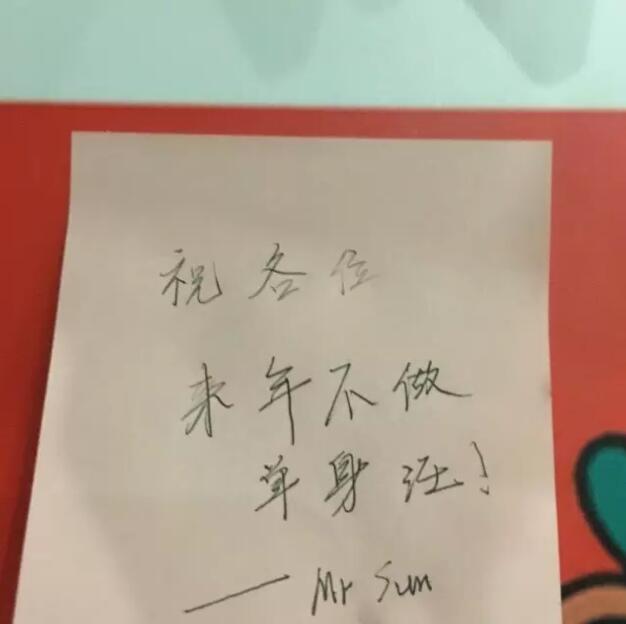 祝各位
来年不做
单身汪!
——Mr Sun